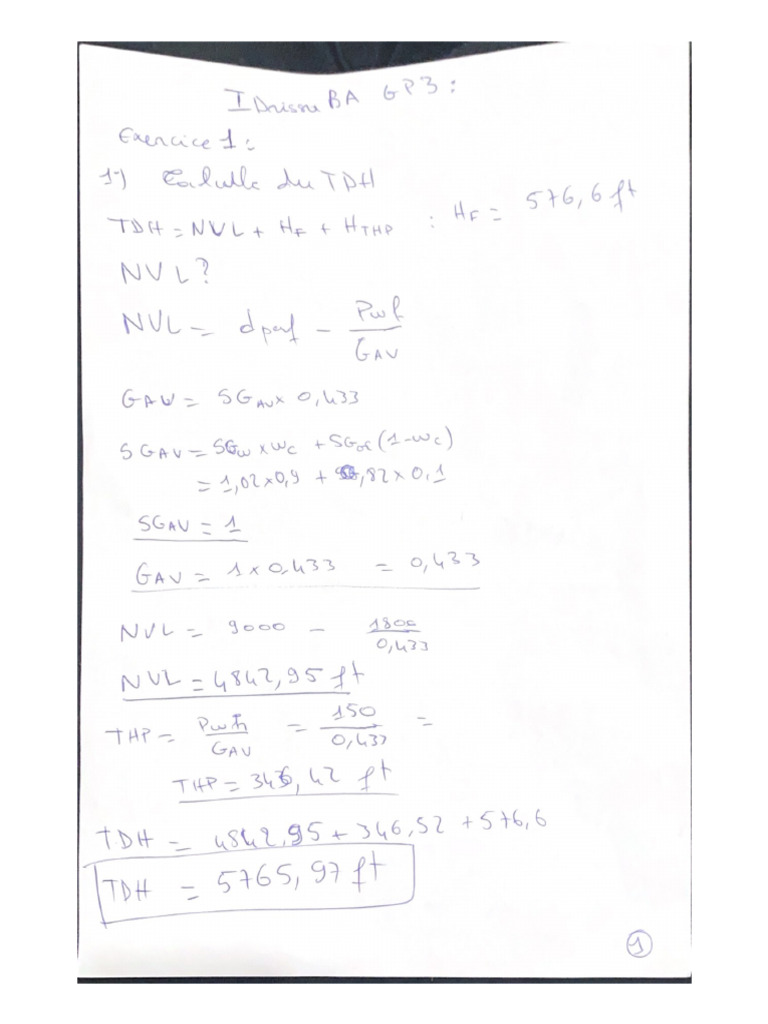 IDrissa BA GP3 :
Exercice 1 :
1°) Calculle du TDH
TDH = NVL + HF + HTHP : HF = 576,6 ft
NVL ?
NVL = dperf - Pwf / GAV
GAV = SGAV x 0,433
SGAV = SGw x wc + SGo (1-wc)
= 1,02 x 0,9 + ,82 x 0,1
SGAV = 1
GAV = 1 x 0,433 = 0,433
NVL = 9000 - 1800 / 0,433
NVL = 4842,95 ft
THP = Pwh / GAV = 150 / 0,433 =
THP = 346,42 ft
TDH = 4842,95 + 346,52 + 576,6
TDH = 5765,97 ft
1